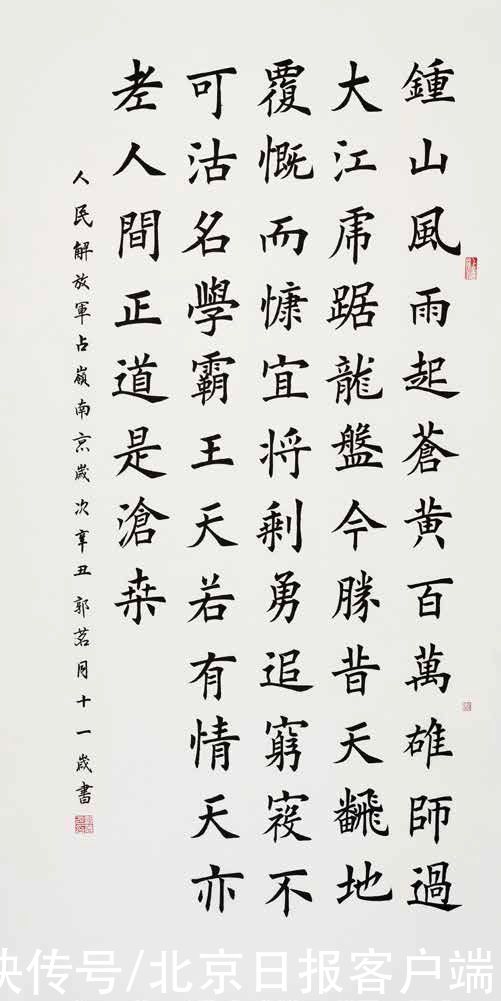 鍾山風雨起蒼黄百萬雄師過
大江虎踞龍盤今勝昔天飜地
覆慨而慷宜将剩勇追窮寇不
可沽名學霸王天若有情天亦
老人間正道是滄桒
人民解放軍占嶺南京歲次辛丑 郭茗月十一歲書
快传号/北京日报客户端